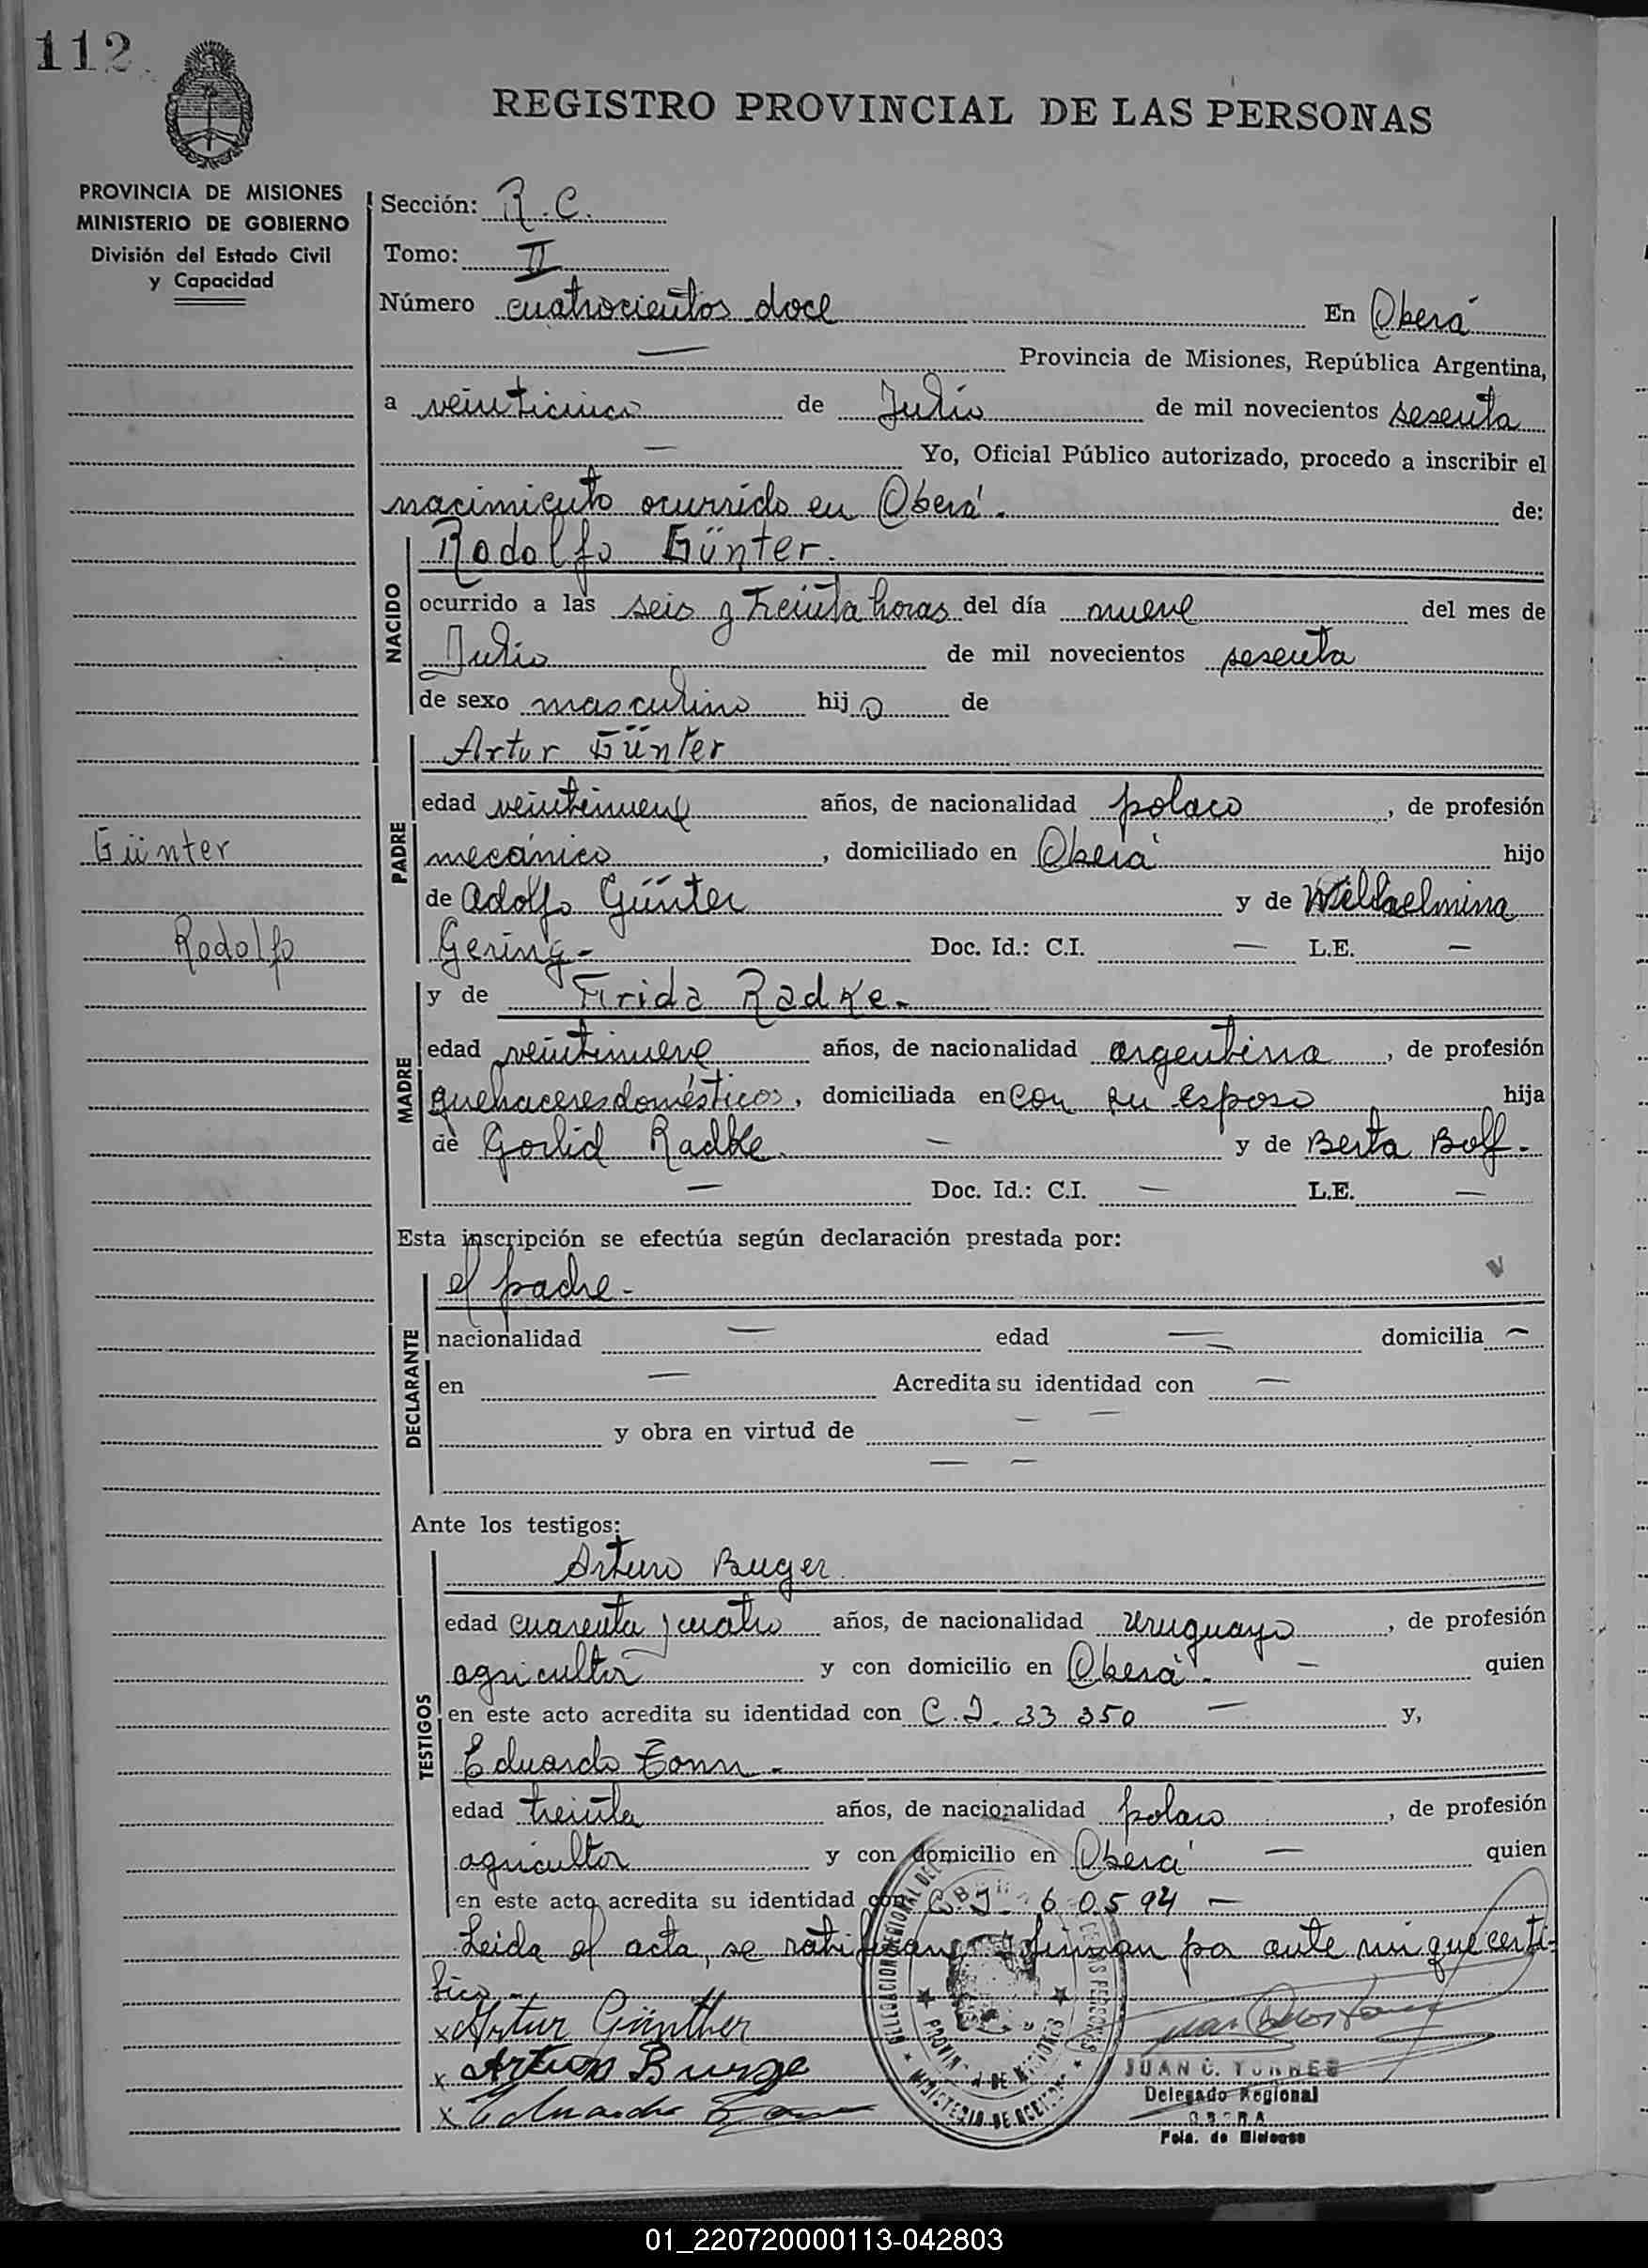 112
REGISTRO PROVINCIAL DE LAS PERSONAS
PROVINCIA DE MISIONES
MINISTERIO DE GOBIERNO
División del Estado Civil
y Capacidad
Sección: R.C.
Tomo: II
Número cuatrocientos doce En Oberá
— Provincia de Misiones, República Argentina,
a veinticinco de Julio de mil novecientos sesenta
— Yo, Oficial Público autorizado, procedo a inscribir el
nacimiento ocurrido en Oberá. de:
NACIDO
Rodolfo Günter.
ocurrido a las seis y treinta horas del día nueve del mes de
Julio de mil novecientos sesenta
de sexo masculino hijo de
PADRE
Artur Günter
edad veintinueve años, de nacionalidad polaco, de profesión
mecánico, domiciliado en Oberá hijo
de Adolfo Günter y de Wilhaelmina
Gering- Doc. Id.: C.I. — L.E. —
Günter
Rodolfo
MADRE
y de Frida Radke-
edad veintinueve años, de nacionalidad argentina, de profesión
quehaceres domésticos, domiciliada en con su esposo hija
de Gorlid Radke. — y de Berta Bolf-
— Doc. Id.: C.I. — L.E. —
Esta inscripción se efectúa según declaración prestada por:
DECLARANTE
el padre-
nacionalidad — edad — domicilia —
en — Acredita su identidad con —
y obra en virtud de — —
— —
Ante los testigos:
TESTIGOS
Arturo Buger
edad cuarenta y cuatro años, de nacionalidad uruguayo, de profesión
agricultor y con domicilio en Oberá- — quien
en este acto acredita su identidad con C.I. 33 350 — y,
Eduardo
edad treinta años, de nacionalidad polaco, de profesión
agricultor y con domicilio en Oberá — quien
en este acto acredita su identidad con C.I. 60594 —
Leida el acta, se ratifican y firman por ante mi que certi-
fico-
x Artur Günther
x Arturo Burge
x Eduardo
DELEGACION REGIONAL DEL
PROVINCIA DE MISIONES
JUAN C. TORRES
Delegado Regional
OBERA
Pcia. de Misiones
01_220720000113-042803